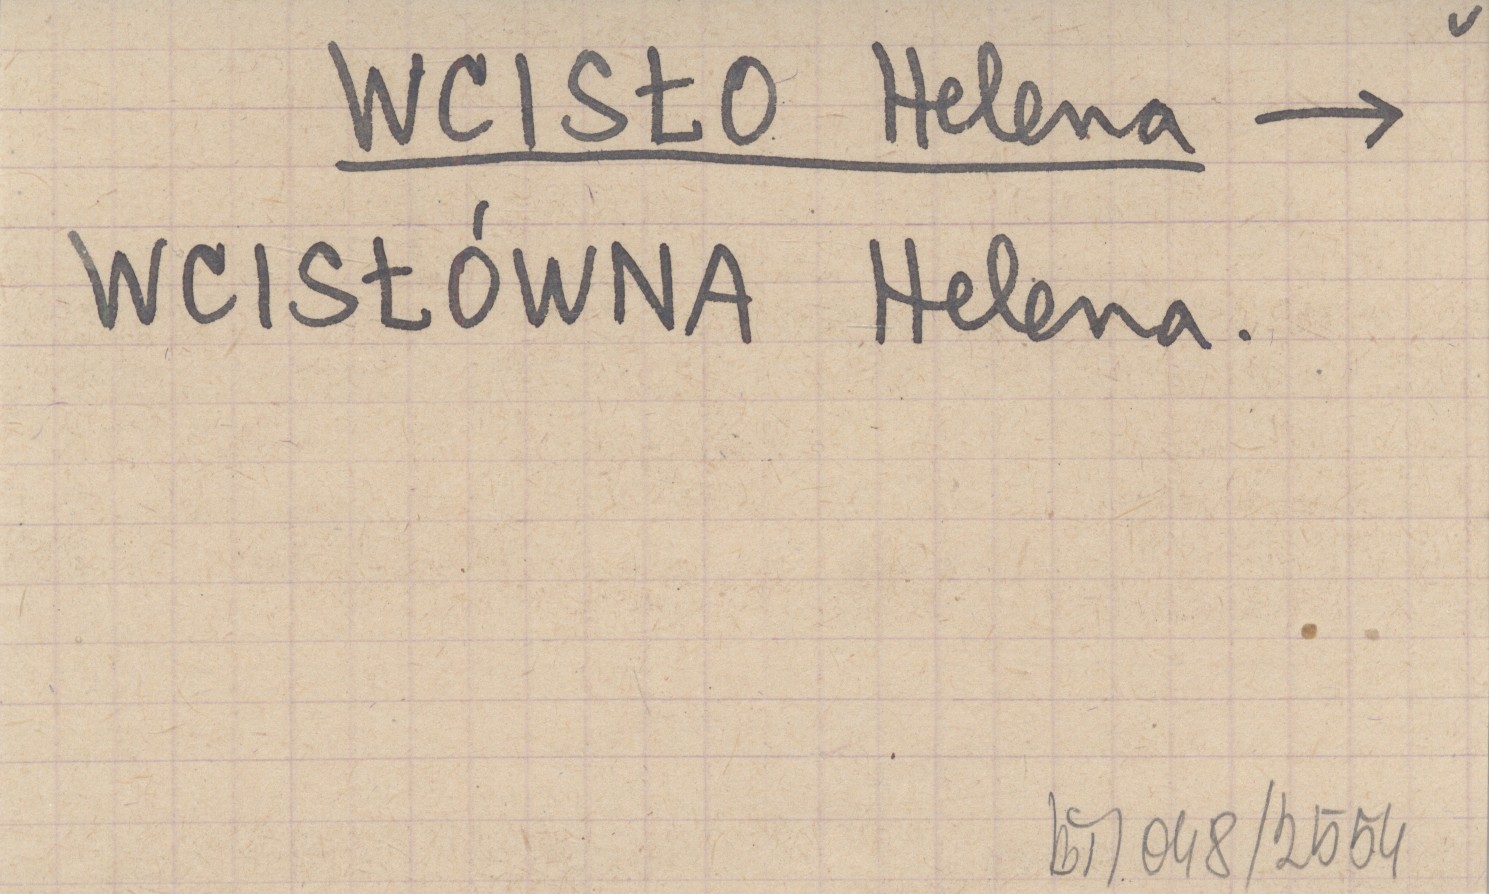 WCISŁO Helena →
WCISŁÓWNA Helena.
048/2554